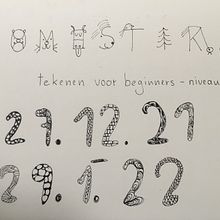 tekenen voor beginners - niveau
27.12.21
29.1.22